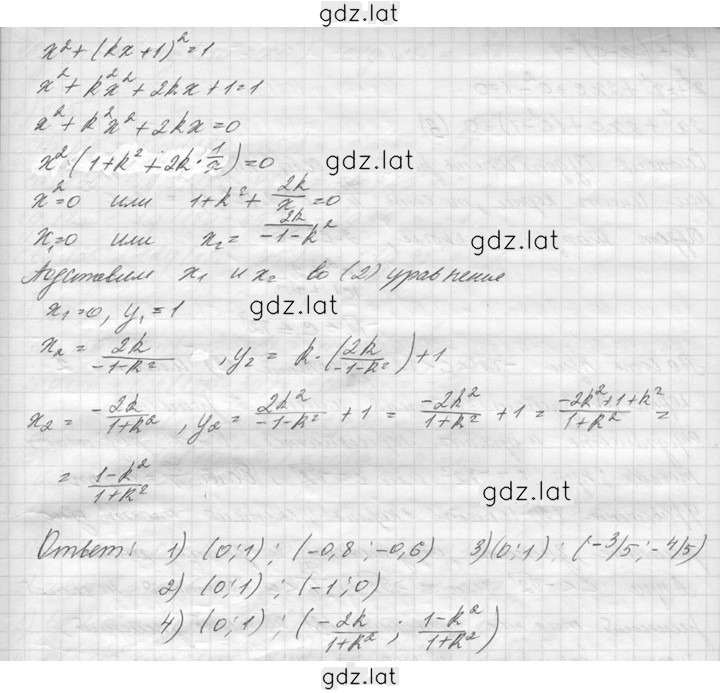 gdz.lat
x²+(kx+1)²=1
x²+k²x²+2kx+1=1
x²+k²x²+2kx=0
x²(1+k²+2k·1/x)=0
gdz.lat
x²=0 или 1+k²+2k/x=0
x₁=0 или x₂=2k/-1-k²
gdz.lat
Подставим x₁ и x₂ во (2) уравнение
x₁=0, y₁=1
gdz.lat
x₂=2k/-1-k², y₂=k·(2k/-1-k²)+1
x₂=-2k/1+k², y₂=2k²/-1-k²+1=-2k²/1+k²+1=-2k²+1+k²/1+k²=
=1-k²/1+k²
gdz.lat
Ответ: 1) (0;1); (-0,8;-0,6) 3)(0;1); (-3/5;-4/5)
2) (0;1); (-1;0)
4) (0;1); (-2k/1+k²; 1-k²/1+k²)
gdz.lat